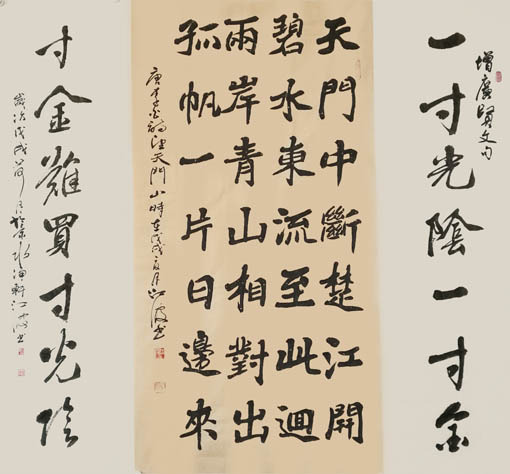 增廣賢文句
一寸光陰一寸金
天門中斷楚江開
碧水東流至此迴
兩岸青山相對出
孤帆一片日邊來
唐李白詩望天門山時在戊戌夏月江波書
寸金難買寸光陰
歲次戊戌